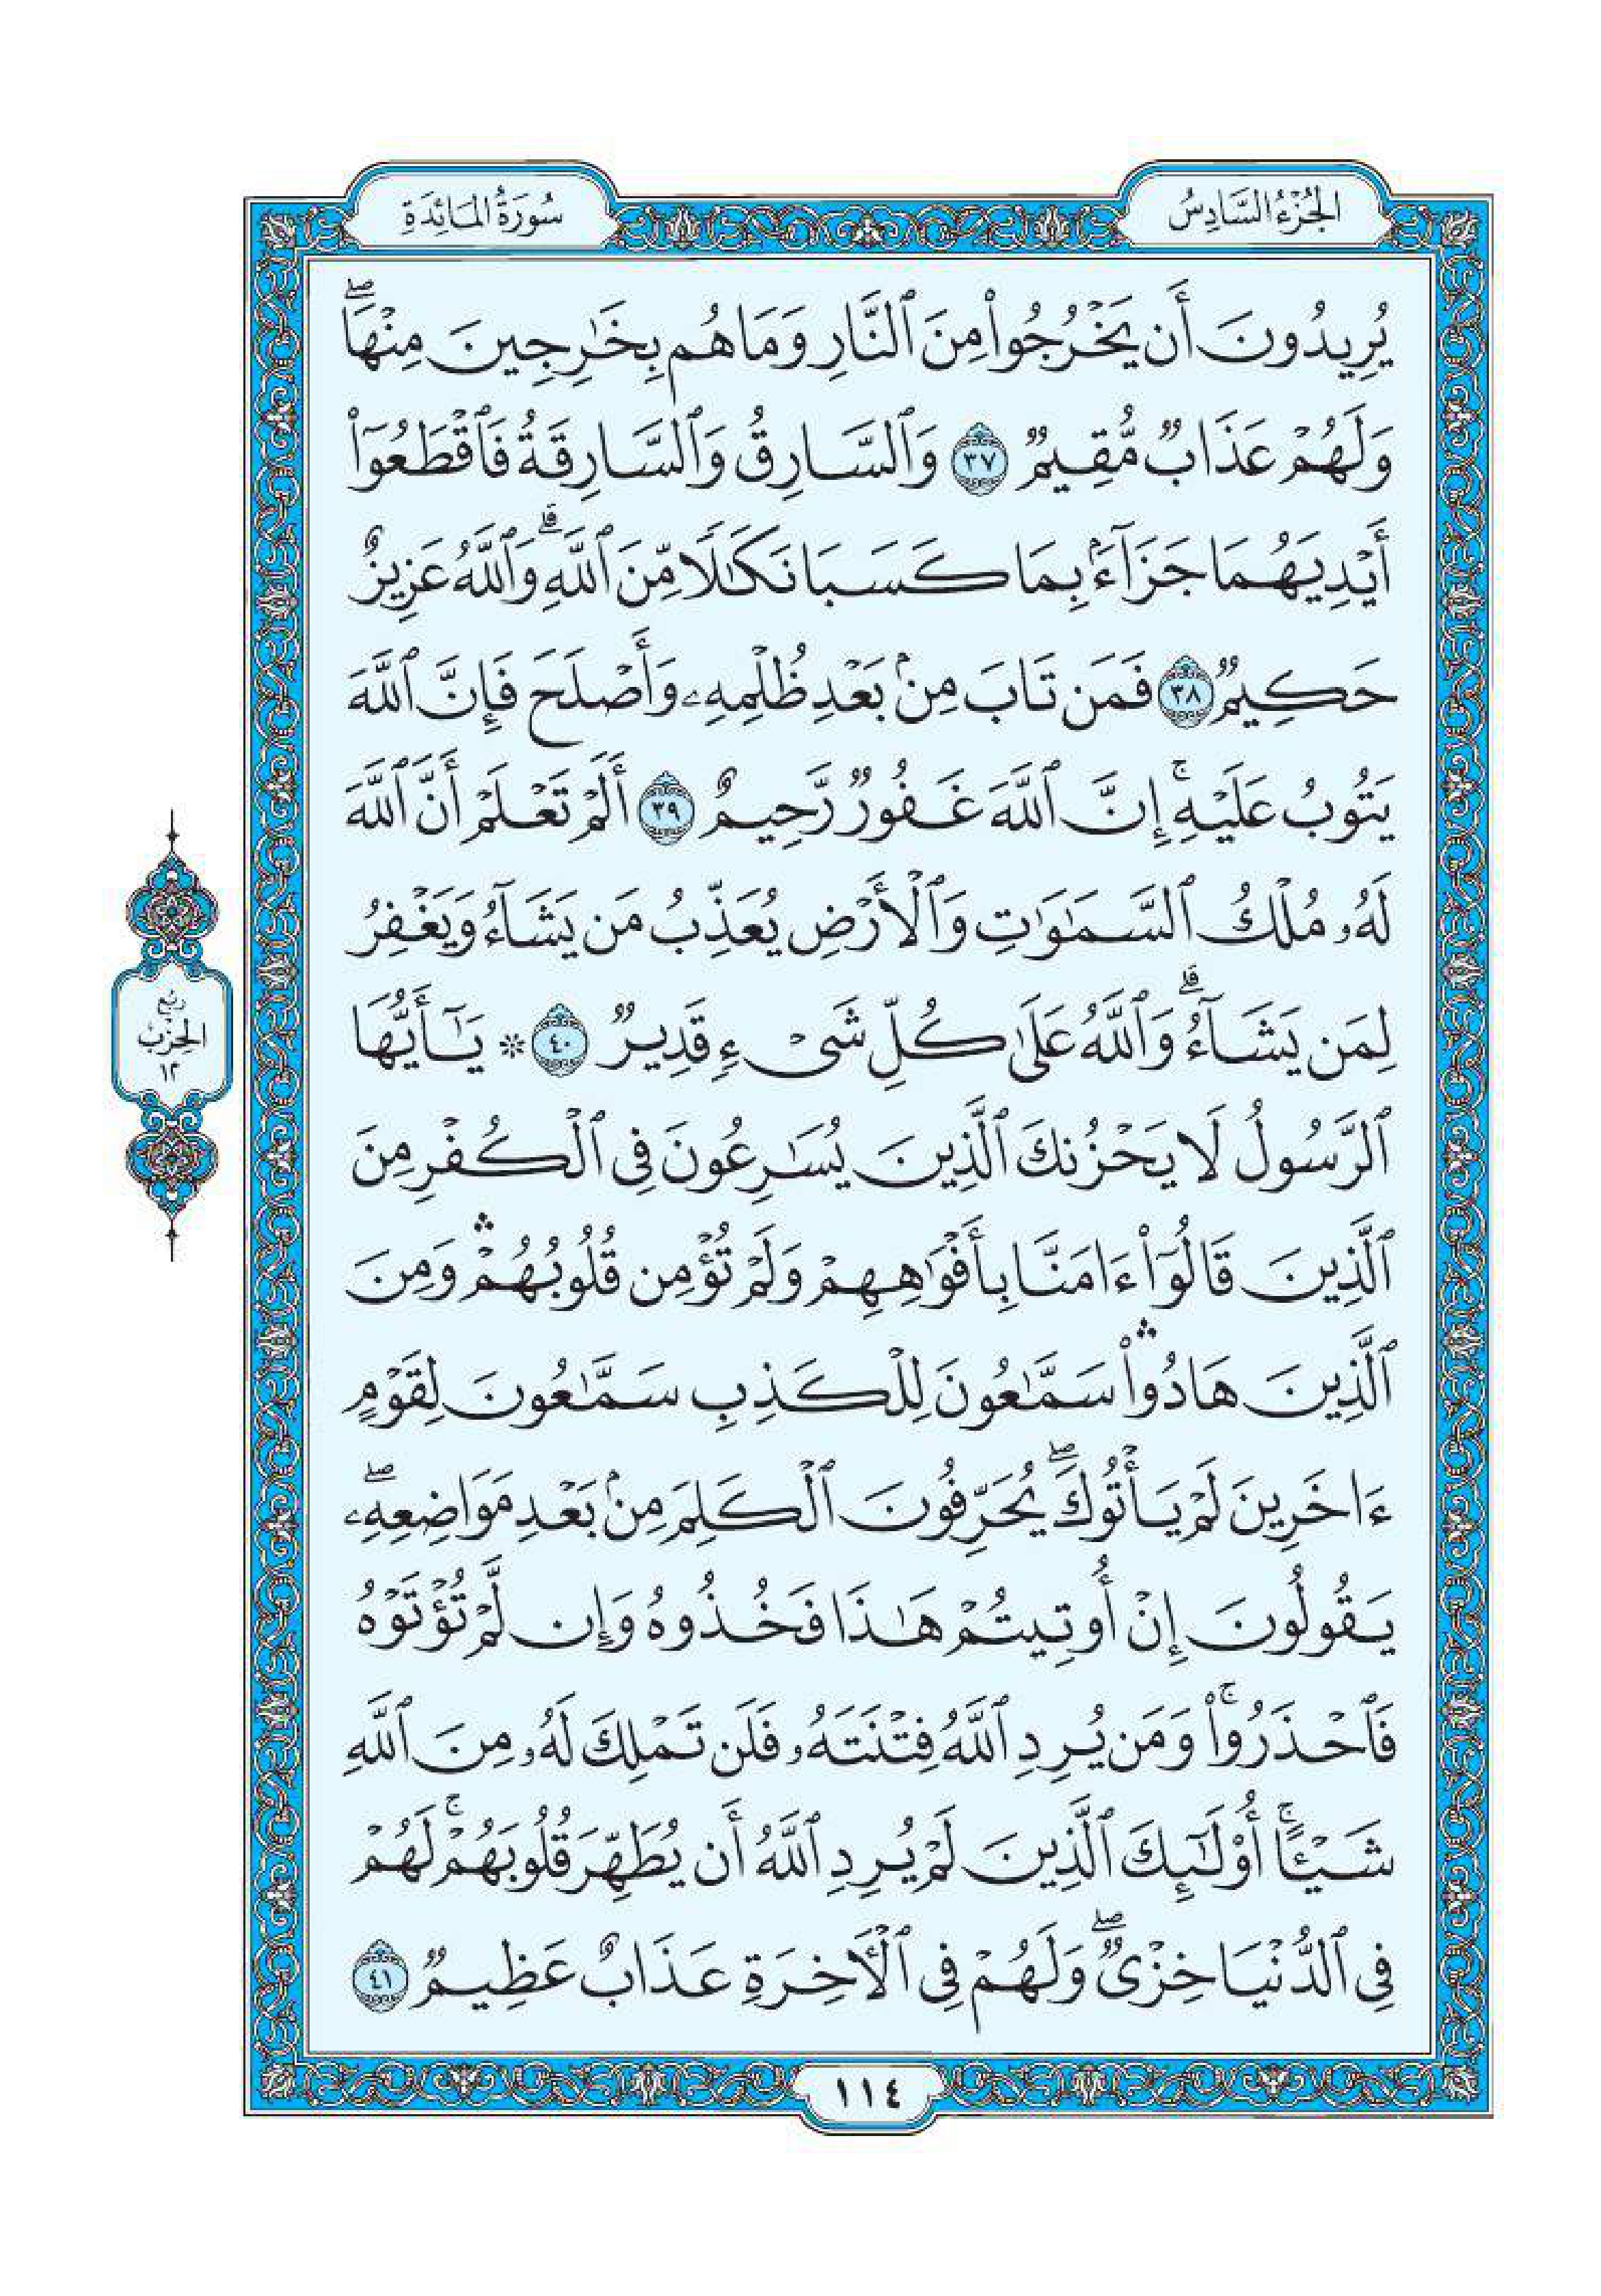 الجُزْءُ السَّادِسُ
سُورَةُ المَائِدَةِ
يُرِيدُونَ أَن يَخْرُجُوا۟ مِنَ ٱلنَّارِ وَمَا هُم بِخَٰرِجِينَ مِنْهَا ۖ
وَلَهُمْ عَذَابٌ مُّقِيمٌ ٣٧ وَٱلسَّارِقُ وَٱلسَّارِقَةُ فَٱقْطَعُوٓا۟
أَيْدِيَهُمَا جَزَآءًۢ بِمَا كَسَبَا نَكَٰلًا مِّنَ ٱللَّهِ ۗ وَٱللَّهُ عَزِيزٌ
حَكِيمٌ ٣٨ فَمَن تَابَ مِنۢ بَعْدِ ظُلْمِهِۦ وَأَصْلَحَ فَإِنَّ ٱللَّهَ
يَتُوبُ عَلَيْهِ ۚ إِنَّ ٱللَّهَ غَفُورٌ رَّحِيمٌ ٣٩ أَلَمْ تَعْلَمْ أَنَّ ٱللَّهَ
لَهُۥ مُلْكُ ٱلسَّمَٰوَٰتِ وَٱلْأَرْضِ يُعَذِّبُ مَن يَشَآءُ وَيَغْفِرُ
لِمَن يَشَآءُ ۗ وَٱللَّهُ عَلَىٰ كُلِّ شَىْءٍ قَدِيرٌ ٤٠ * يَٰٓأَيُّهَا
ٱلرَّسُولُ لَا يَحْزُنكَ ٱلَّذِينَ يُسَٰرِعُونَ فِى ٱلْكُفْرِ مِنَ
ٱلَّذِينَ قَالُوٓا۟ ءَامَنَّا بِأَفْوَٰهِهِمْ وَلَمْ تُؤْمِن قُلُوبُهُمْ ۛ وَمِنَ
ٱلَّذِينَ هَادُوا۟ ۛ سَمَّٰعُونَ لِلْكَذِبِ سَمَّٰعُونَ لِقَوْمٍ
ءَاخَرِينَ لَمْ يَأْتُوكَ ۖ يُحَرِّفُونَ ٱلْكَلِمَ مِنۢ بَعْدِ مَوَاضِعِهِۦ ۖ
يَقُولُونَ إِنْ أُوتِيتُمْ هَٰذَا فَخُذُوهُ وَإِن لَّمْ تُؤْتَوْهُ
فَٱحْذَرُوا۟ ۚ وَمَن يُرِدِ ٱللَّهُ فِتْنَتَهُۥ فَلَن تَمْلِكَ لَهُۥ مِنَ ٱللَّهِ
شَيْـًٔا ۚ أُو۟لَٰٓئِكَ ٱلَّذِينَ لَمْ يُرِدِ ٱللَّهُ أَن يُطَهِّرَ قُلُوبَهُمْ ۚ لَهُمْ
فِى ٱلدُّنْيَا خِزْىٌ ۖ وَلَهُمْ فِى ٱلْءَاخِرَةِ عَذَابٌ عَظِيمٌ ٤١
رُبْع
الحِزْبْ
١٢
١١٤